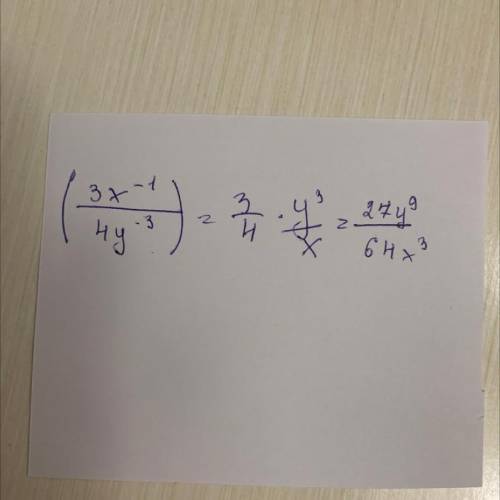 (3x⁻¹/4y⁻³) = 3/4 · y³/x = 27y⁹/64x³